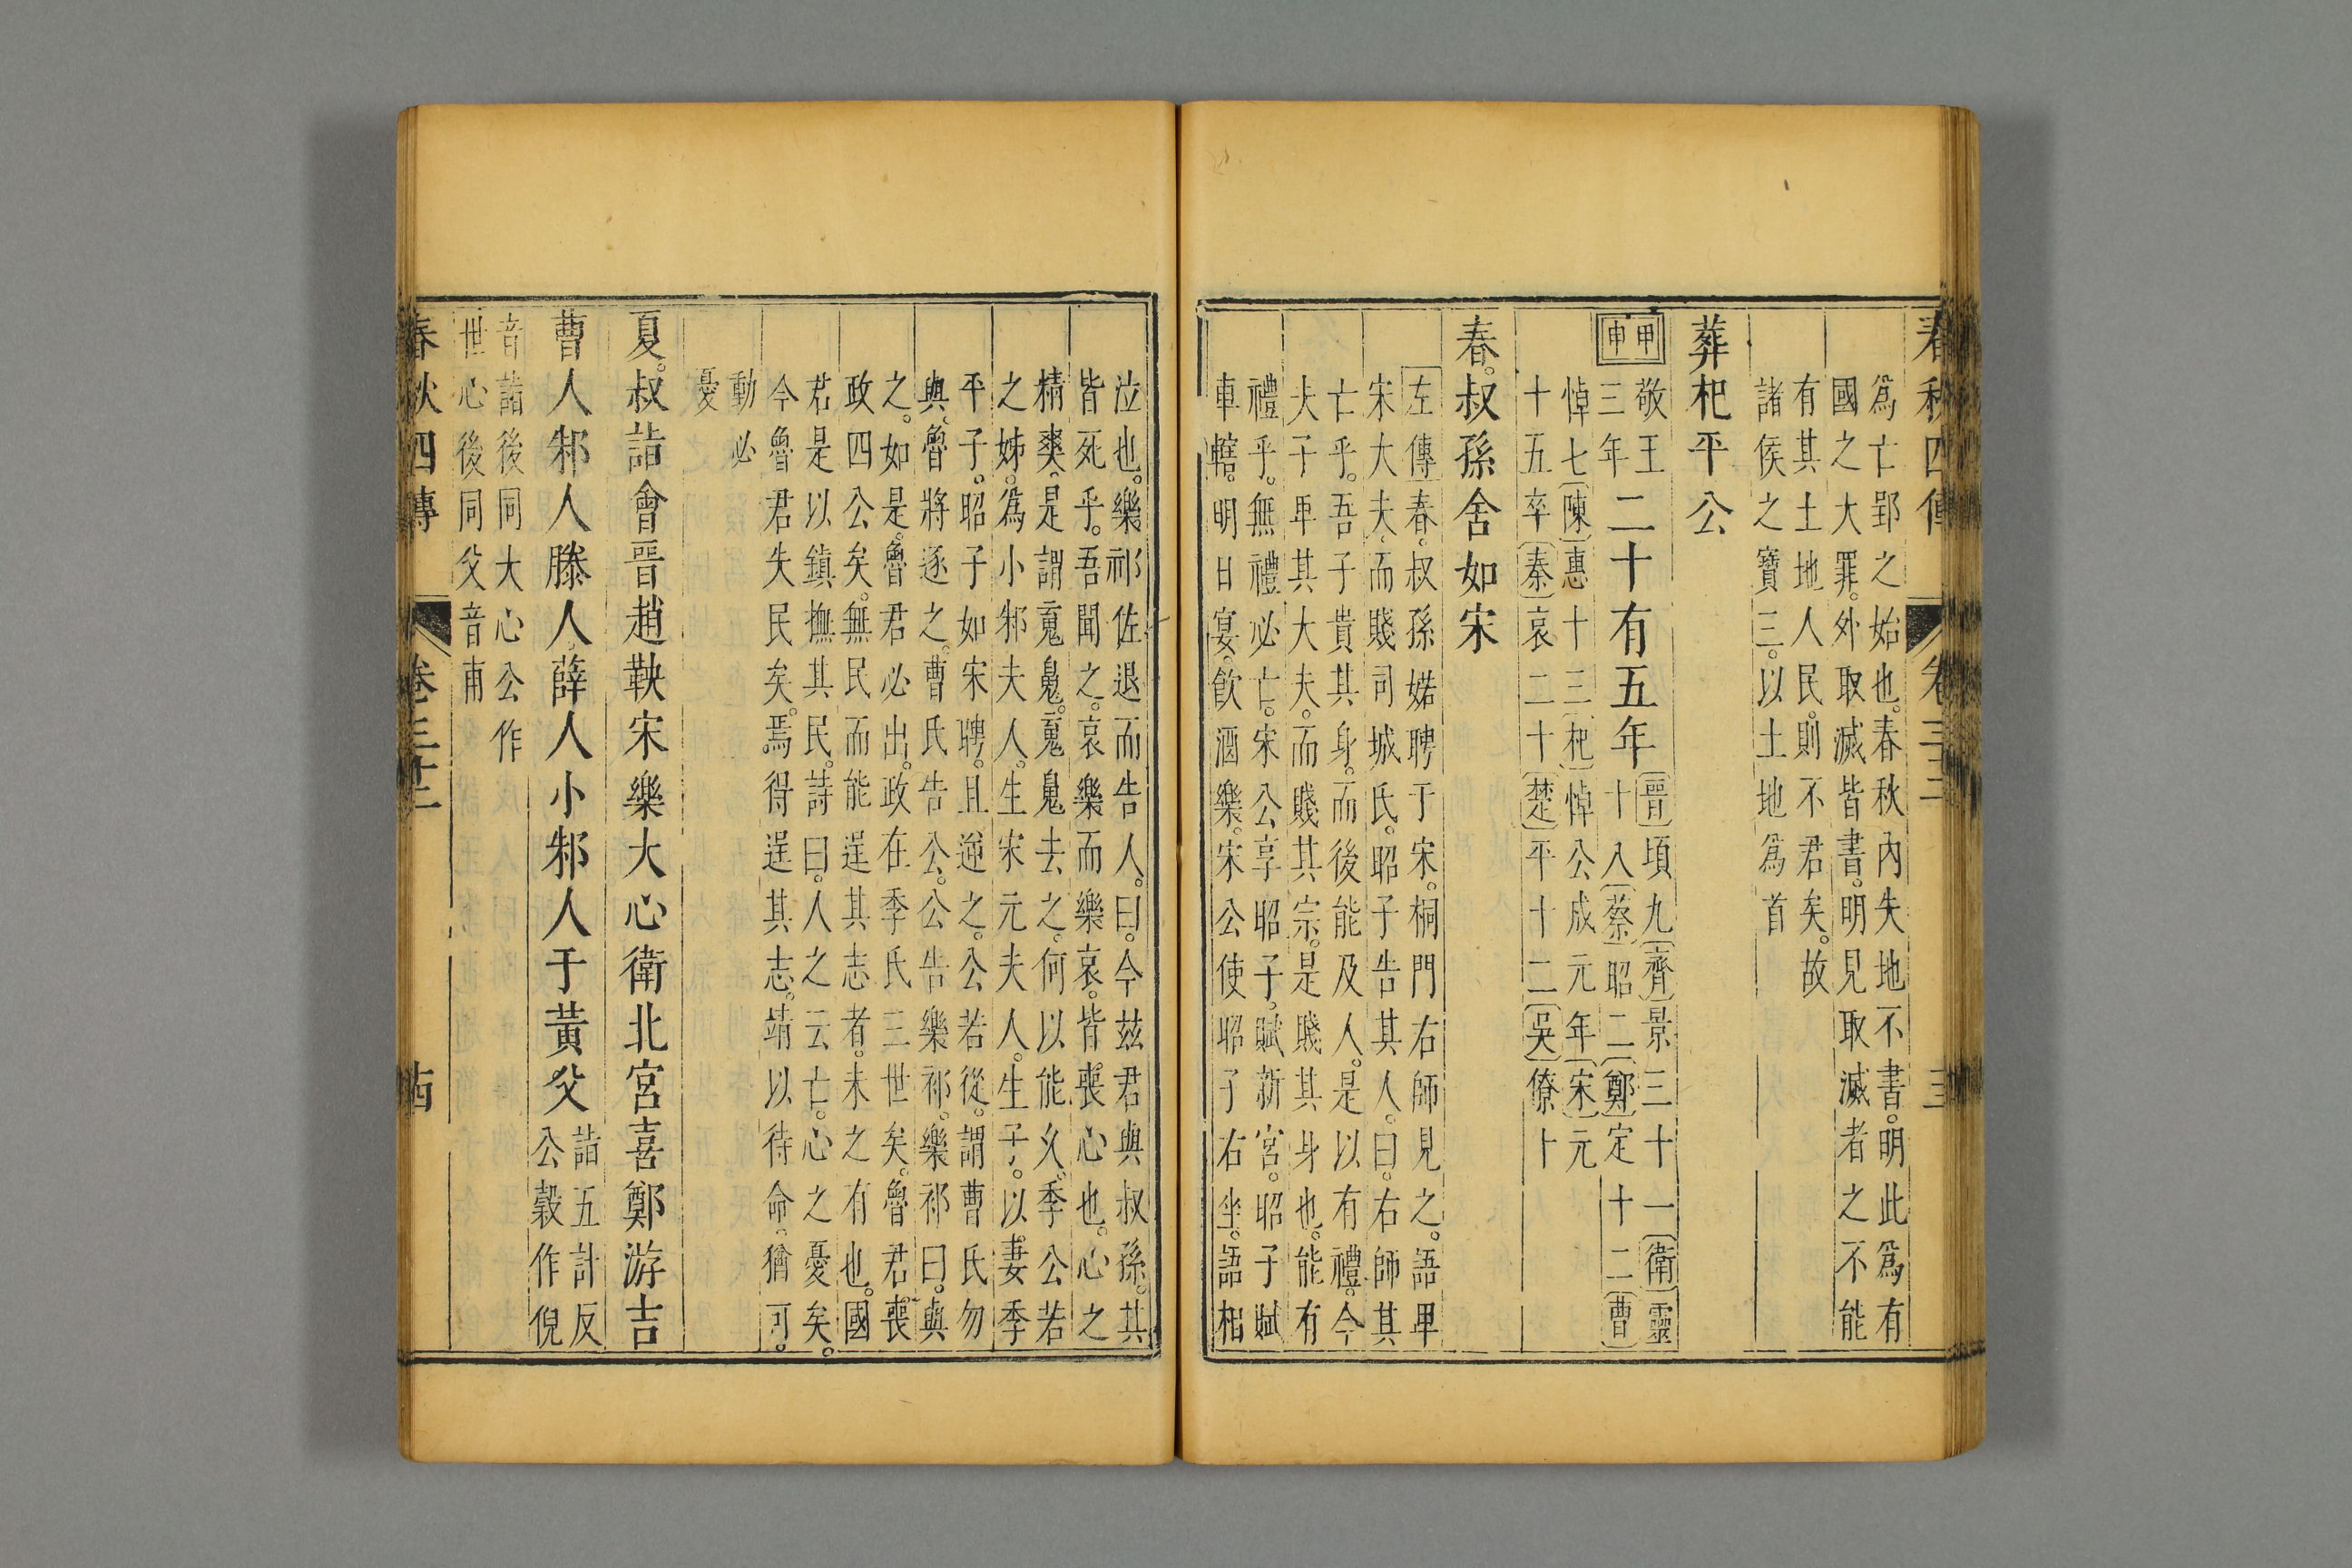 春秋四傳 卷三十二
爲亡郢之始也。春秋內失地不書。明此爲有
國之大罪。外取滅皆書。明見取滅者之不能
有其土地人民。則不君矣。故
諸侯之寶三。以土地爲首
葬杞平公
甲申
敬王三年二十有五年
晉頃九齊景三十一衛靈
十八蔡昭二鄭定十二曹
悼七陳惠十三杞悼公成元年宋元
十五卒秦哀二十楚平十二吳僚十
春。叔孫舍如宋
左傳春。叔孫婼聘于宋。桐門右師見之。語卑
宋大夫。而賤司城氏。昭子告其人。曰。右師其
亡乎。吾子貴其身。而後能及人。是以有禮。今
夫子卑其大夫。而賤其宗。是賤其身也。能有
禮乎。無禮必亡。宋公享昭子。賦新宮。昭子賦
車轄。明日宴。飮酒樂。宋公使昭子右坐。語相
泣也。樂祁佐退而告人。曰。今茲君與叔孫。其
皆死乎。吾聞之。哀樂而樂哀。皆喪心也。心之
精爽。是謂䰟䰟。䰟䰟去之。何以能久。季公若
之姊。爲小邾夫人。生宋元夫人。生子。以妻季
平子。昭子如宋聘。且逆之。公若從。謂曹氏勿
與。魯將逐之。曹氏告公。公告樂祁。樂祁曰。與
之。如是。魯君必出。政在季氏三世矣。魯君喪
政四公矣。無民而能逞其志者。未之有也。國
君是以鎮撫其民。詩曰。人之云亡。心之憂矣。
今魯君失民矣。焉得逞其志。靖以待命。猶可。
動必
憂
夏。叔詣會晉趙鞅宋樂大心衛北宮喜鄭游吉
曹人邾人滕人薛人小邾人于黃父
詣五計反
公穀作倪
音詣後同大心公作
世心後同父音甫
春秋四傳 卷三十二 十四